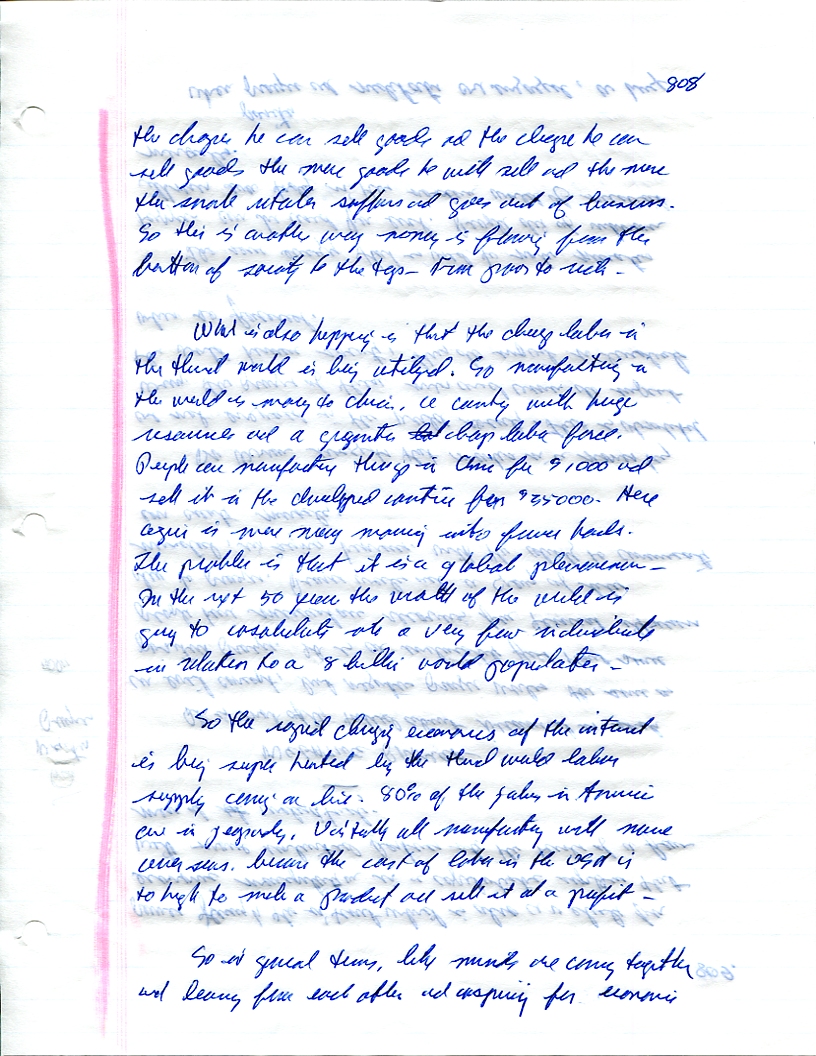 808
the cheaper he can sell goods and the cheaper he can
sell goods the more goods he will sell and the more
the small retailer suffers and goes out of business.
So this is another way money is flowing from the
bottom of society to the top – from poor to rich –
What is also happening is that the cheap labor in
the third world is being utilized. So manufacturing in
the world is moving to China, a country with huge
resources and a cheap labor force.
People can manufacture things in China for $1,000 and
sell it in the developed countries for $35000. Here
again is more money moving into fewer hands.
The problem is that it is a global phenomenon –
In the next 50 years the wealth of the world is
going to consolidate into a very few individuals
in relation to a 8 billion world population –
So the rapid changing economics of the internet
is being super heated by the third world labor
supply coming on line. 80% of the jobs in America
are in jeopardy. Virtually all manufacturing will move
over seas. because the cost of labor in the USA is
to high to make a product and sell it at a profit –
So in general terms, like minds are coming together
and learning from each other and inspiring for economic